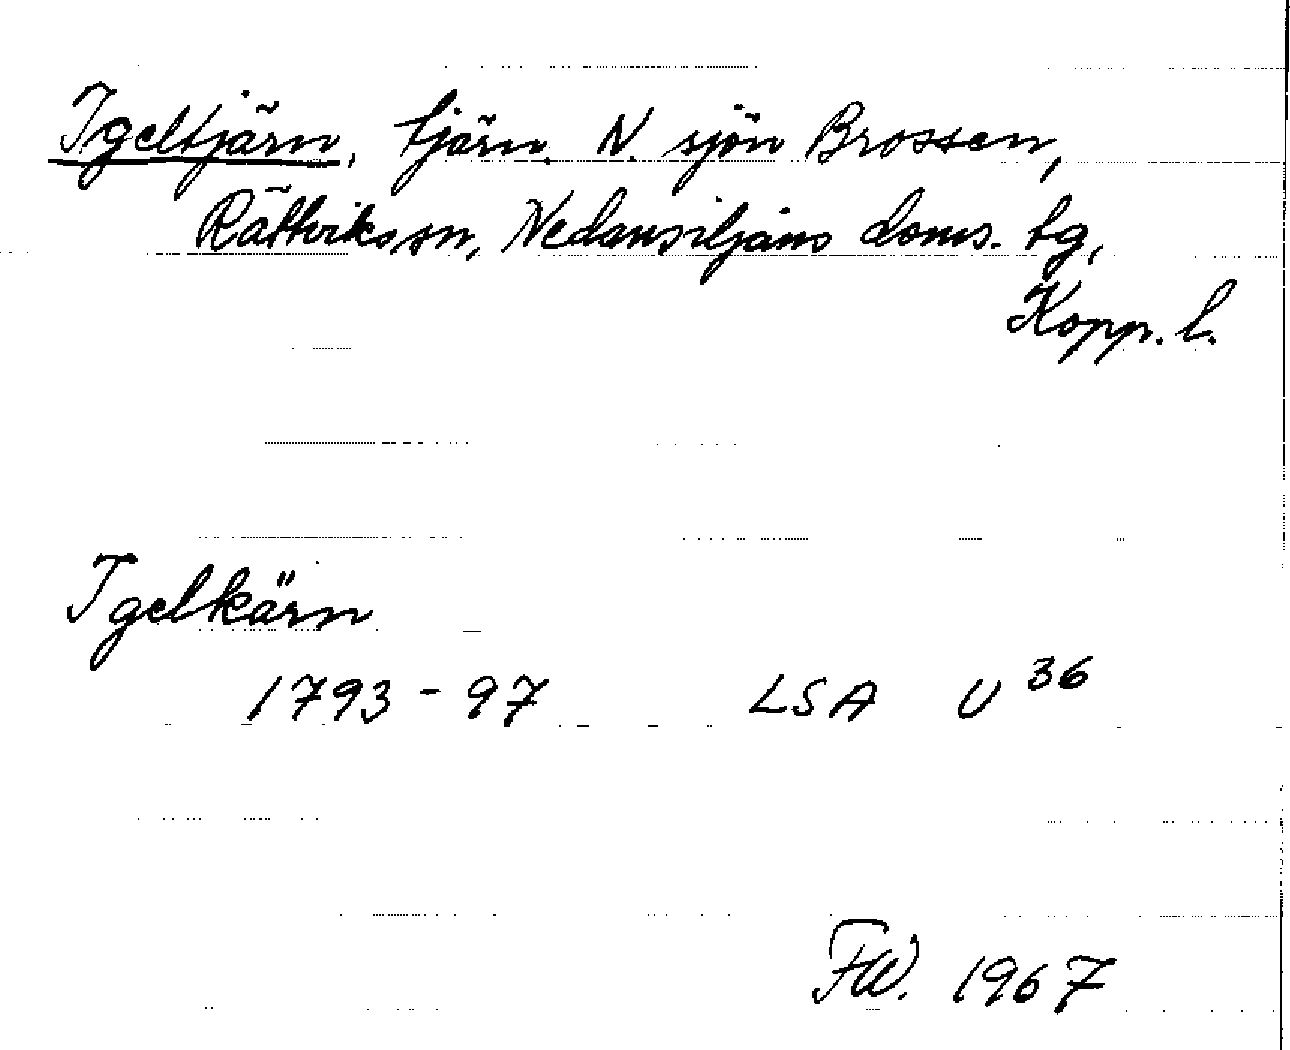 Igeltjärn, tjärn N. sjön Brossen,
Rättviks sn, Nedansiljans doms. tg,
Kopp. l.
Igelkärn
1793-97 LSA U 36
FW. 1967